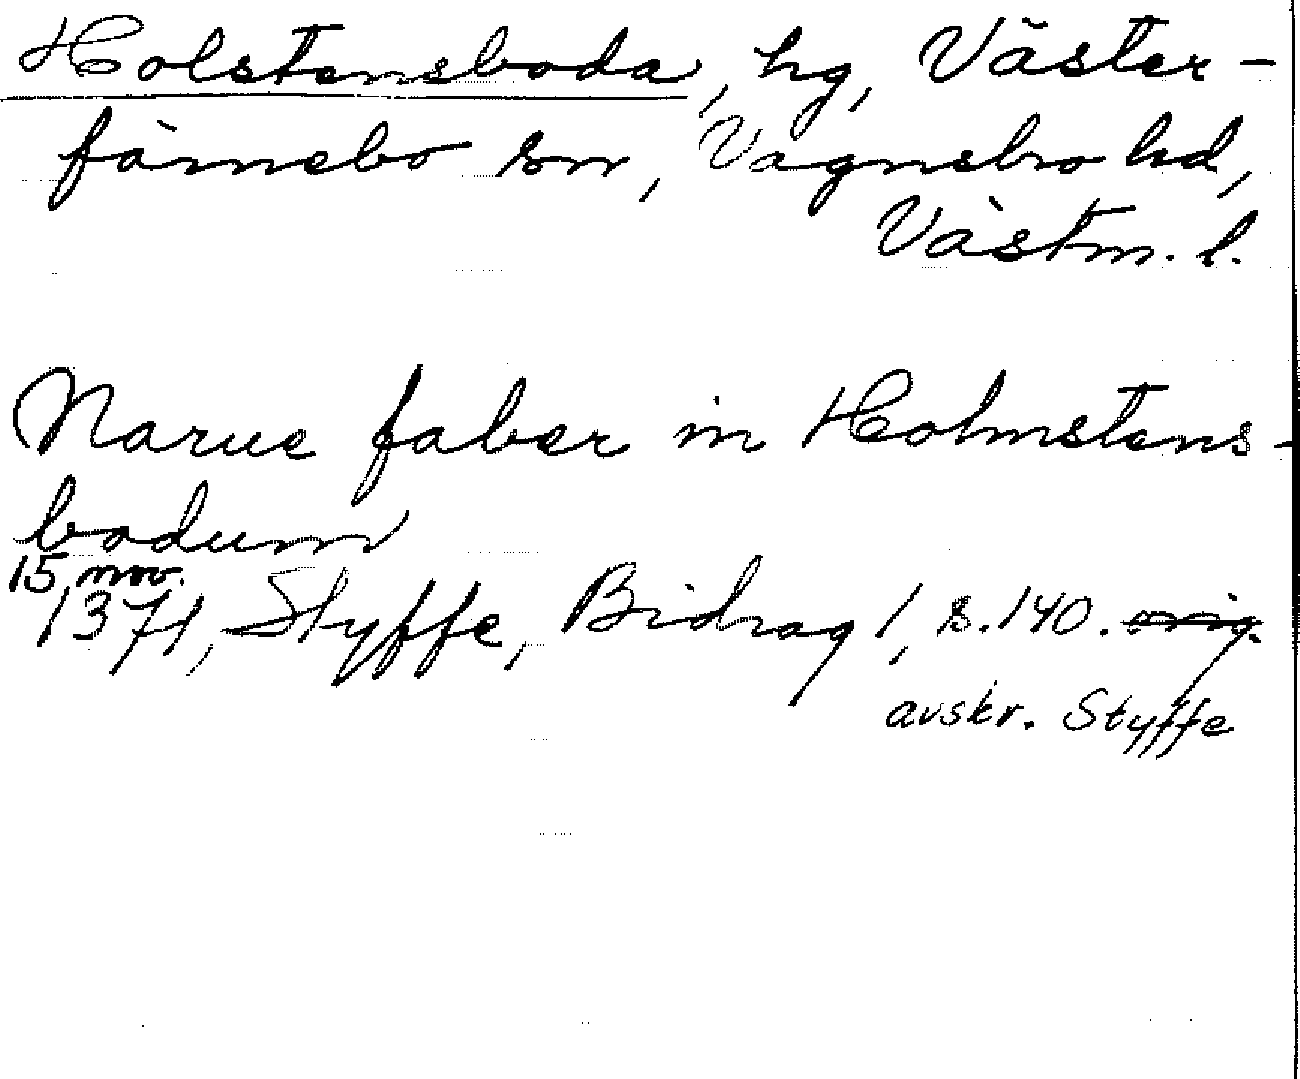 Holstensboda, hg, Väster-
färnebo sn, Vagnsbro hd,
Västm. l.
Narue faber in Holmstens-
bodum
15 nov.
1371, Styffe, Bidrag 1, s. 140. orig.
avskr. Styffe